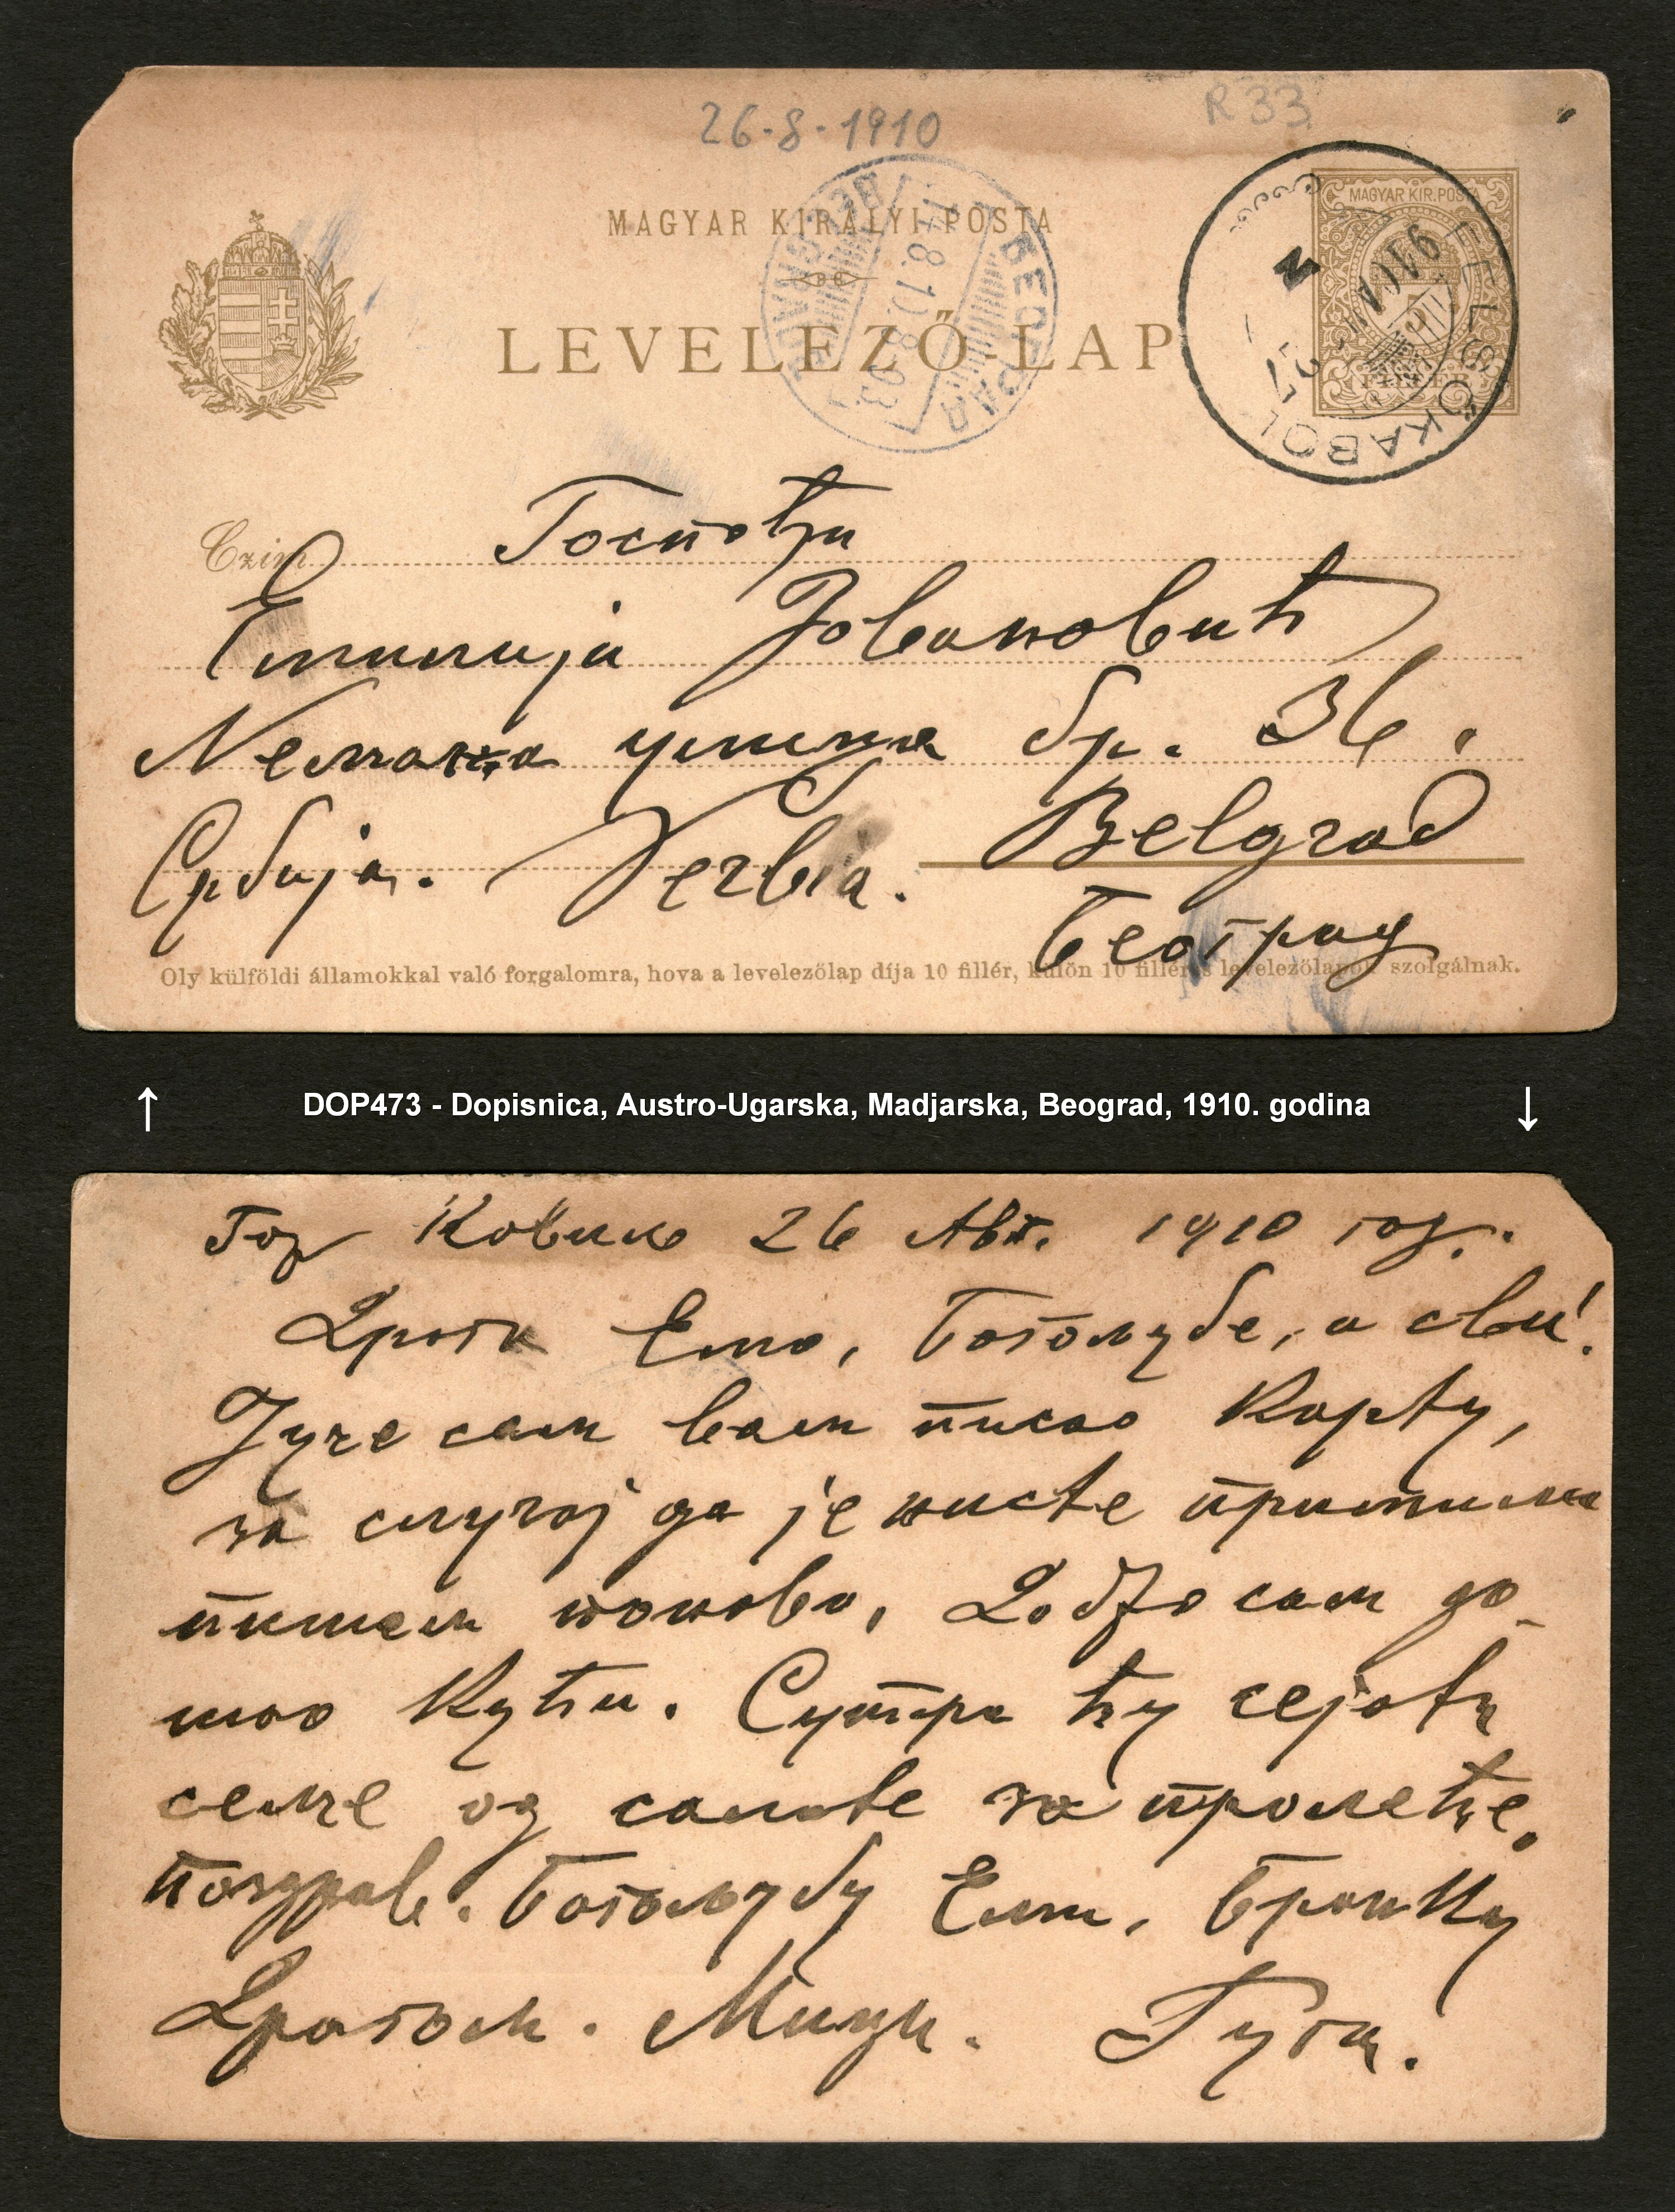 26-8-1910
R 33
MAGYAR KIRÁLYI POSTA
MAGYAR KIR. POSTA
LEVELEZŐ-LAP
BEOGRAD
FELSŐKABOL
Czim
Госпођи
Емилија Јовановић
Nемањa улица бр. 36.
Србија. Serbia. Belgrad
Београд
Oly külföldi államokkal való forgalomra, hova a levelezőlap díja 10 fillér, külön 10 filléres levelezőlapok szolgálnak.
↑ DOP473 - Dopisnica, Austro-Ugarska, Madjarska, Beograd, 1910. godina ↓
Гор Ковиљ 26 Авг. 1910 год.
Драга Емо, Богољубе, и сви!
Јуче сам вам писао карту,
за случај да је нисте примили
пишем поново, Добро сам до-
шао Кући. Сутра ћу сејати
семе од салате за пролеће.
Поздрав. Богољубу Еми, Бранку
Драгом. Мици.